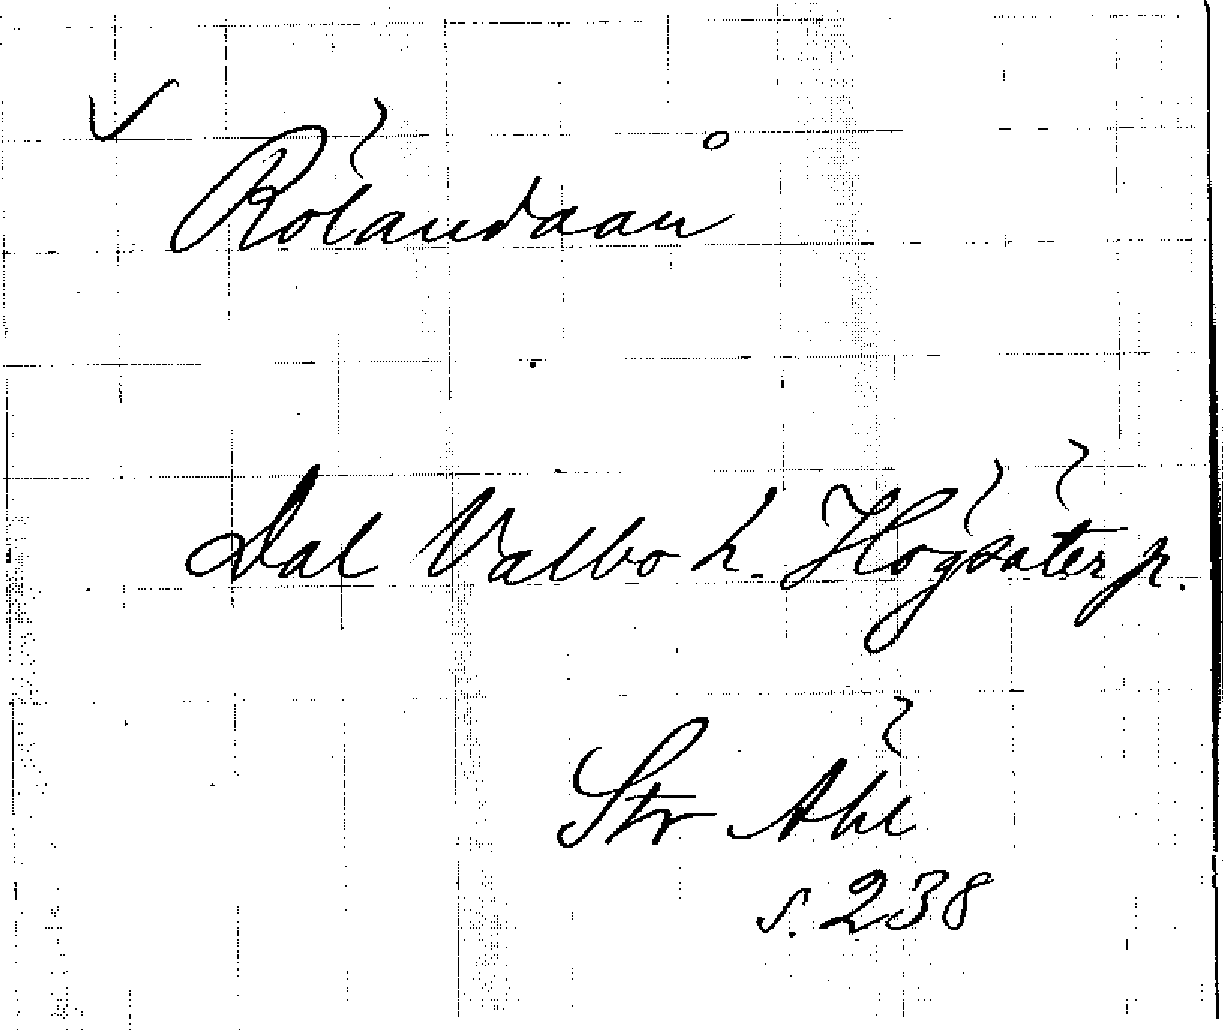 Rölandaån
Dal Valbo h. Högsäter p.
Str Ähl
s. 238